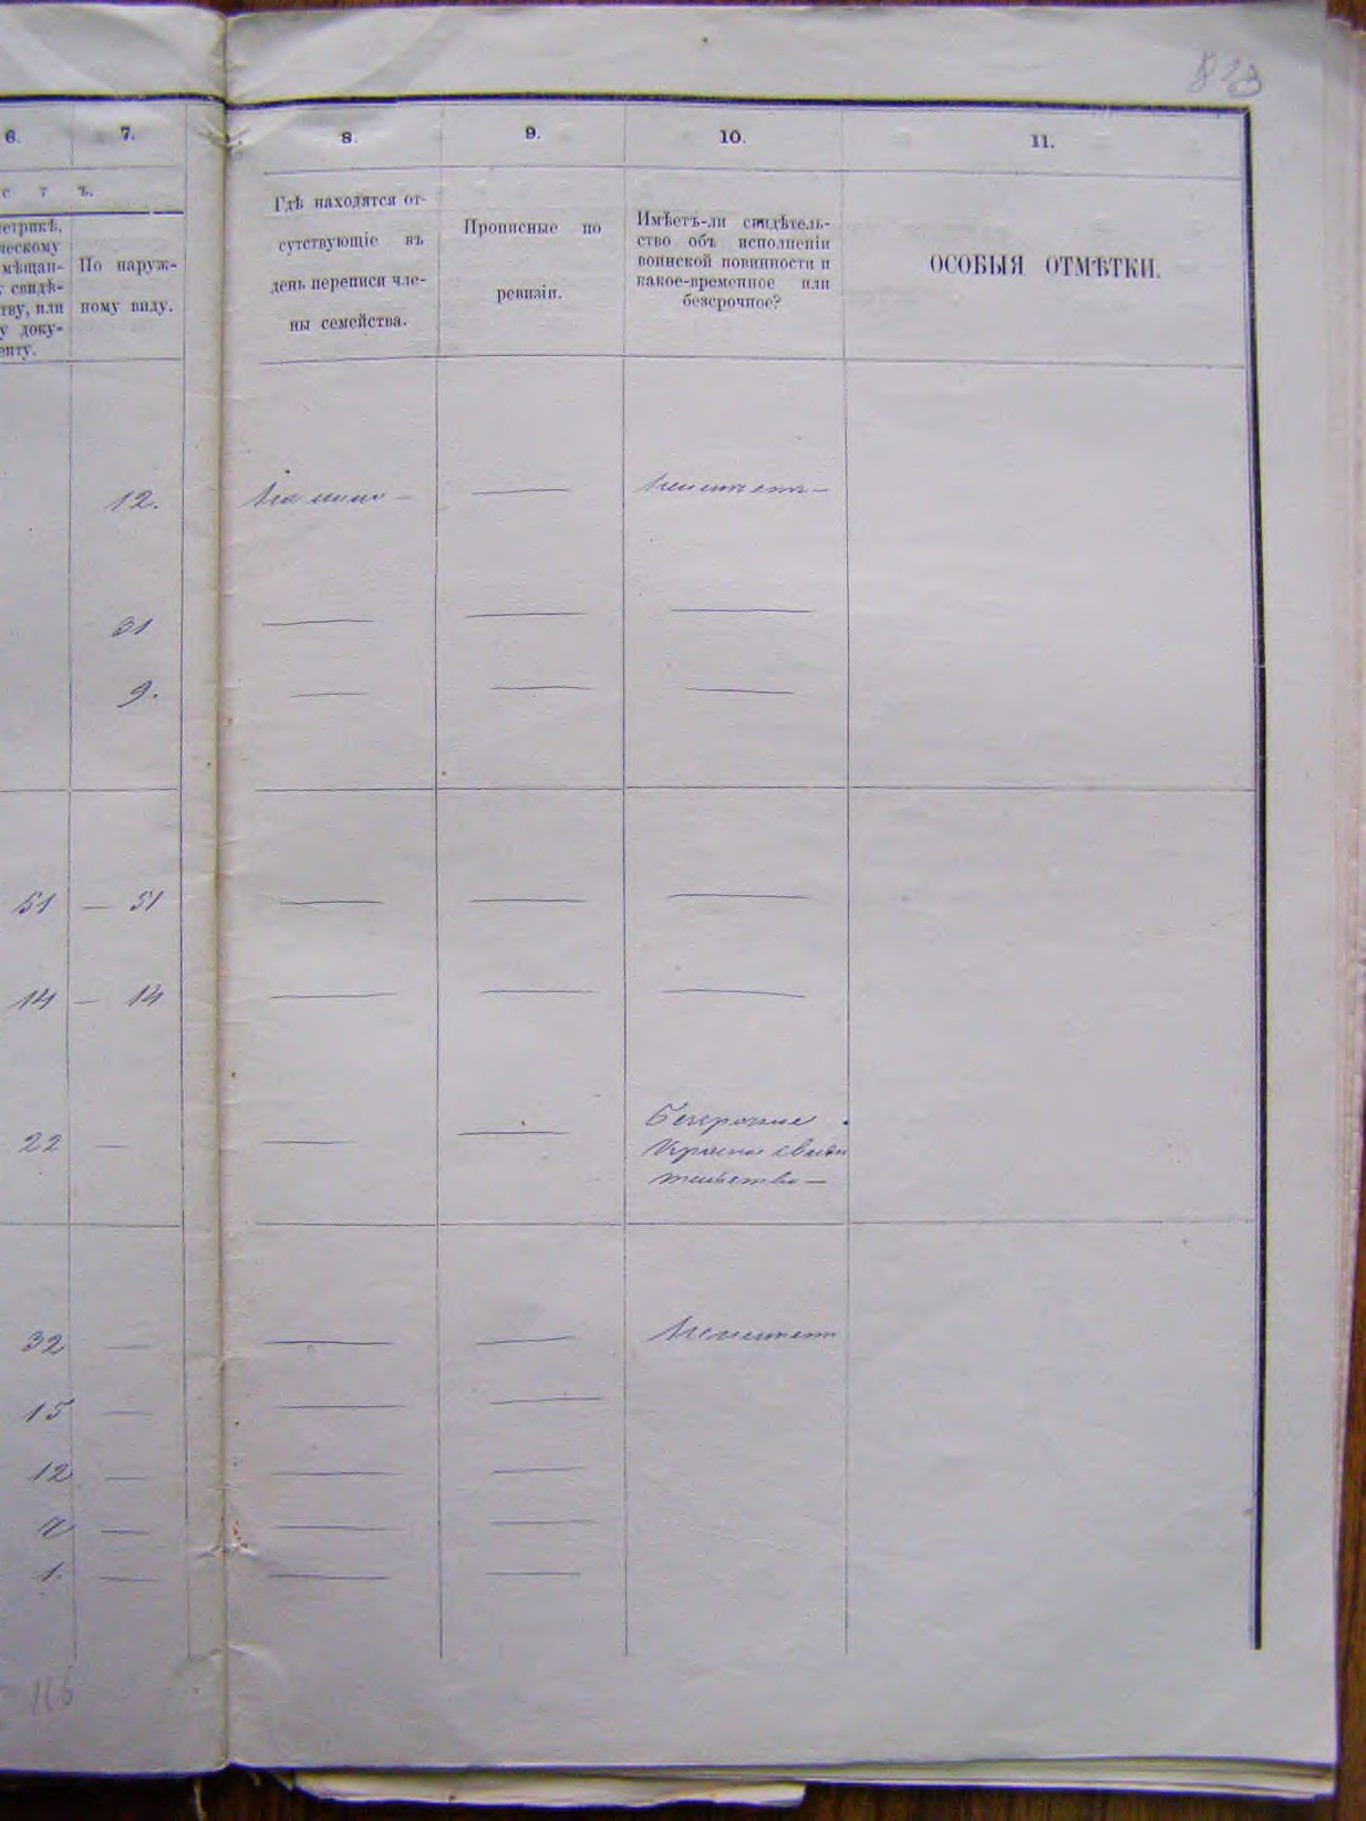 6. 7. 8. 9. 10. 11.
с т ь.
етрикѣ,
ческому
мѣщан-
свидѣ-
тву, или
у доку-
енту.
По наруж-
ному виду.
Гдѣ находятся от-
сутствующіе въ
день переписи чле-
ны семейства.
Прописные по
ревизіи.
Имѣетъ-ли свидѣтель-
ство объ исполненіи
воинской повинности и
какое-временное или
безсрочное?
ОСОБЫЯ ОТМѢТКИ.
12. — неимѣетъ —
31 — — —
9. — — —
51 — 51 — — —
14 — 14 — — —
22 — — —
Безсрочное
Красное свидѣ
тельство —
32 — — — Неимѣетъ
15 — — —
12 — — —
— — —
1. — — —
116